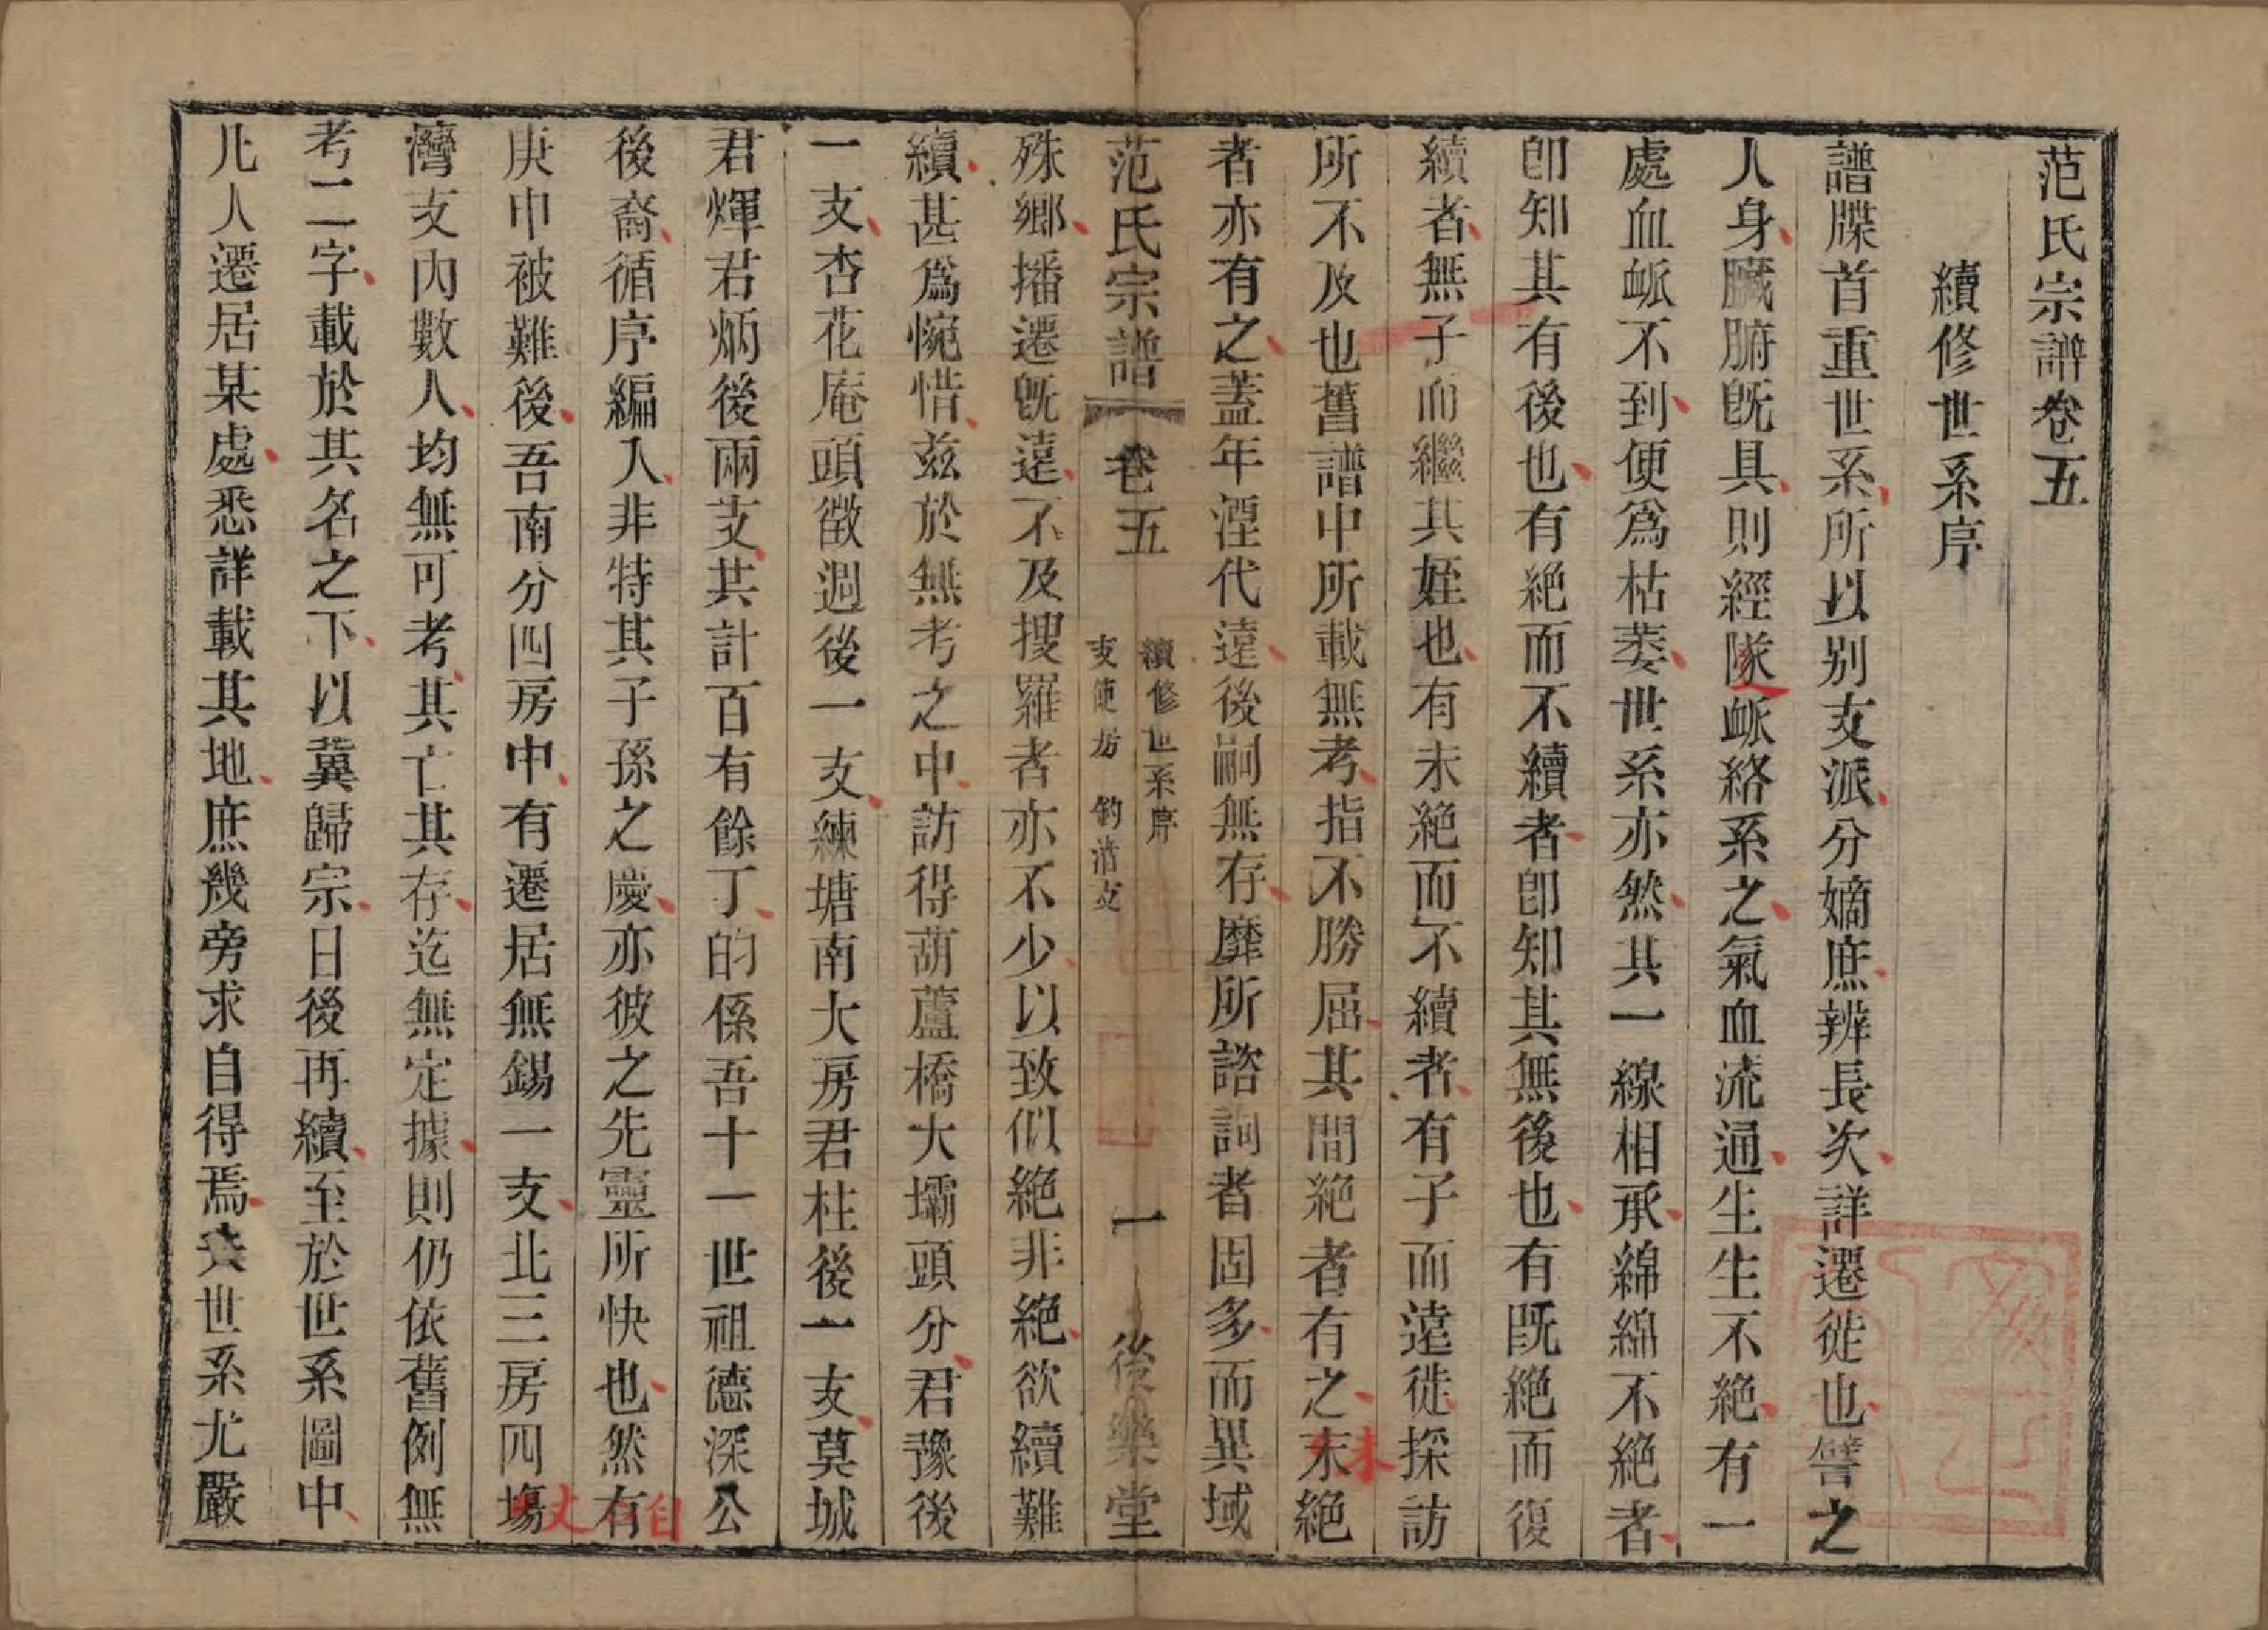 范氏宗譜卷五
續修世系序
譜牒首重世系所以别支派分嫡庶辨長次詳遷徙也譬之
人身臟腑旣具則經隧衇絡系之氣血流通生生不絶有一
處血衇不到便爲枯萎世系亦然其一線相承綿綿不絶者
卽知其有後也有絶而不續者卽知其無後也有既絶而復
續者無子而繼其姪也有未絶而不續者有子而遠徙探訪
所不及也舊譜中所載無考指不勝屈其間絶者有之末絶
者亦有之蓋年湮代遠後嗣無存靡所諮詢者固多而異域
范氏宗譜
卷五
續修世系序
支使房 鈞清支
一
後樂堂
殊鄉播遷旣遠不及搜羅者亦不少以致似絶非絶欲續難
續甚爲惋惜兹於無考之中訪得葫蘆橋大壩頭分君豫後
一支杏花庵頭徵週後一支練塘南大房君柱後一支莫城
君煇君炳後兩支共計百有餘丁的係吾十一世祖德深公
後裔循序編入非特其子孫之慶亦彼之先靈所快也然有
庚申被難後吾南分四房中有遷居無錫一支北三房四塲
灣支內數人均無可考其亡其存迄無定據則仍依舊例無
考二字載於其名之下以冀歸宗日後再續至於世系圖中
凡人遷居某處悉詳載其地庶幾旁求自得焉夫世系尤嚴
未
自